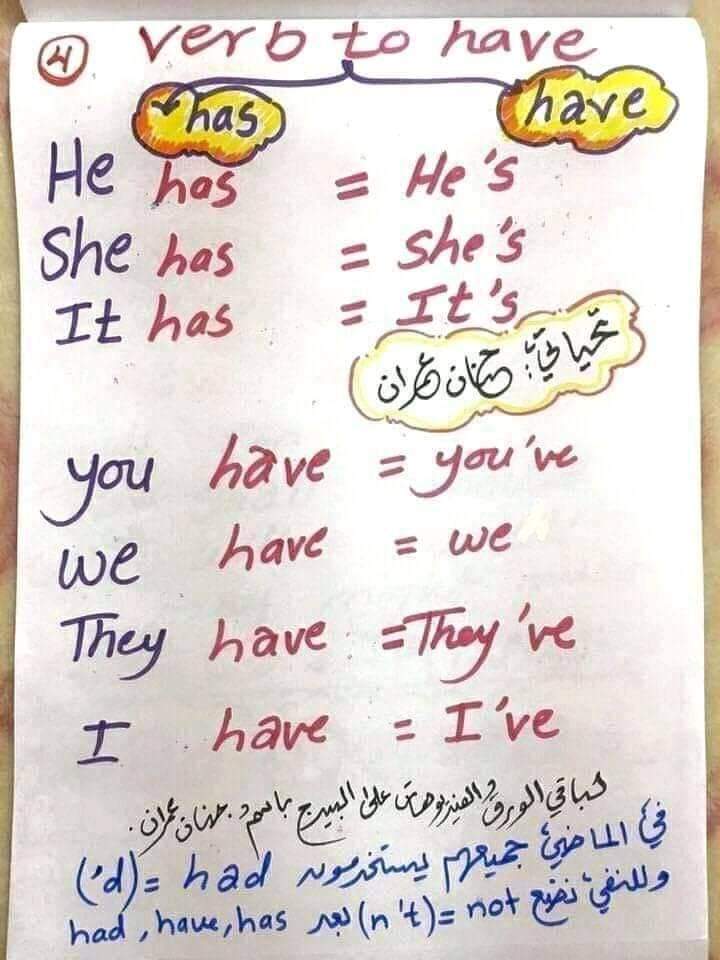 4 verb to have
has have
He has = He's
She has = She's
It has = It's
تحياتي؛ حنان عمران
you have = you've
we have = we
They have = They've
I have = I've
لباقي الورق والفيديوهات على البيدج باسم. حنان عمران.
في الماضي جميعهم يستخدمون had = ('d)
وللنفي نضع not = (n't) بعد had, have, has